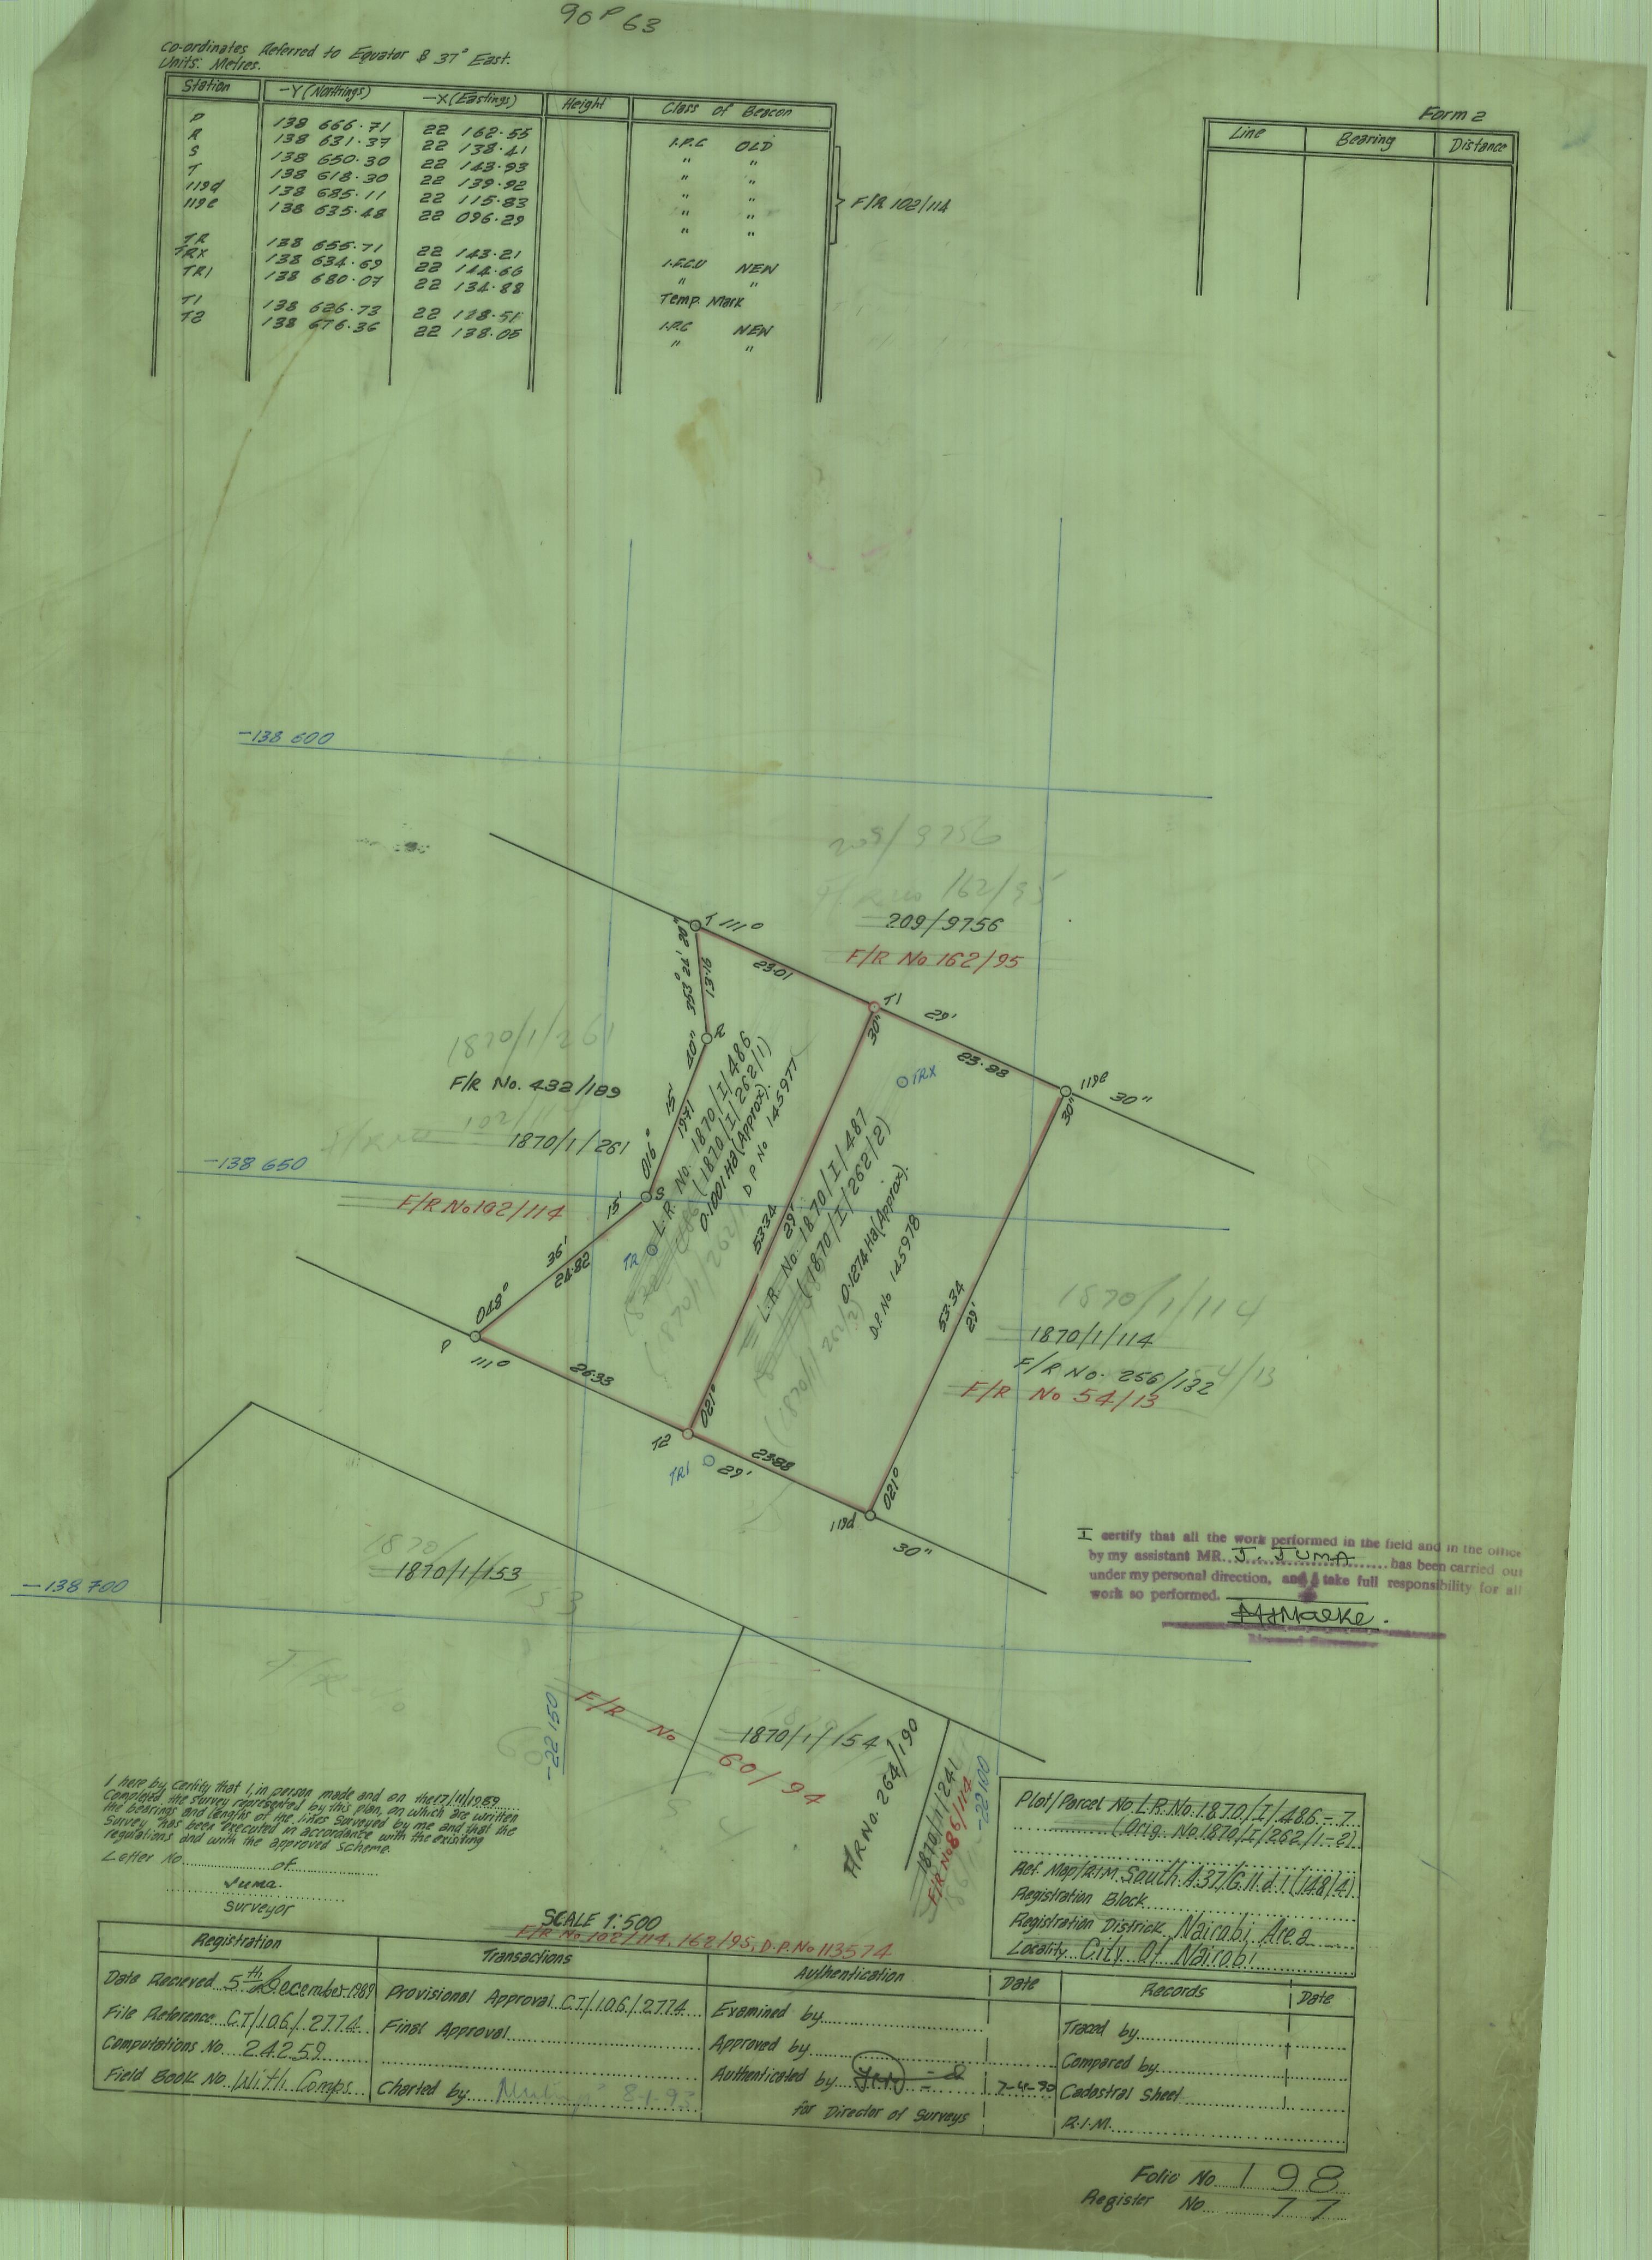 90 P 63
Co-ordinates Referred to Equator & 37° East.
Units: Metres.
Station -Y (Northings) -X (Eastings) Height Class of Beacon
P 138 666.71 22 162.55 I.P.C OLD
R 138 631.37 22 138.41 " "
S 138 650.30 22 143.93 " "
T 138 618.30 22 139.92 " "
119d 138 685.11 22 115.83 " "
119e 138 635.48 22 096.29 " "
F/R 102/114
TR 138 655.71 22 143.21 I.P.C.U NEW
TRX 138 634.69 22 144.66 " "
TR1 138 680.07 22 134.88 Temp. Mark
T1 138 626.73 22 128.51 I.P.C NEW
T2 138 676.36 22 138.05 " "
Form 2
Line Bearing Distance
-138 600
209/9756
F/R No 162/95
T 111°
23.01
T1
29'
23.88
119e
30"
353° 24' 20"
13.16
R
016° 15' 40"
19.71
S
15'
36'
24.82
048°
P
111°
26.33
T2
021°
53.34
29'
30"
TRX
TR
TR1
29'
23.88
119d
30"
021°
53.34
29'
30"
F/R No. 432/189
1870/1/261
-138 650
F/R No 102/114
L.R. No. 1870/I/486
(1870/I/262/1)
0.1001 Ha (Approx).
D.P No 145977
L.R. No. 1870/I/487
(1870/I/262/2)
0.1274 Ha (Approx).
D.P. No 145978
1870/1/114
F/R No. 256/132
F/R No 54/13
1870/1/153
-138 700
I certify that all the work performed in the field and in the office
by my assistant MR. J. JUMA has been carried out
under my personal direction, and I take full responsibility for all
work so performed.
-22 150
F/R No 60/94
1870/1/154
F/R No. 264/190
1870/1/241
F/R No 86/114
-22 100
I here by certify that I, in person made and on the 17/11/1989
Completed the survey represented by this plan, on which are written
the bearings and lengths of the lines surveyed by me and that the
Survey has been executed in accordance with the existing
regulations and with the approved scheme.
Letter No. of
Juma.
Surveyor
SCALE 1:500
F/R No 102/114, 162/95, D.P. No 113574
Plot/Parcel No. L.R. No. 1870/I/486-7
(Orig. No. 1870/I/262/1-2)
Ref. Map/R.I.M. South A.37/G.11.d.1 (148/4)
Registration Block
Registration District Nairobi Area
Locality City Of Nairobi
Registration Transactions Authentication Date Records Date
Date Recieved 5th December 1989
File Reference C.T/106/2774
Computations No. 24259
Field Book No. With Comps
Provisional Approval C.T/106/2774
Final Approval
Charted by 8.1.93
Examined by
Approved by
Authenticated by 7-4-90
for Director of Surveys
Traced by
Compared by
Cadastral Sheet
R.I.M.
Folio No. 198
Register No. 77